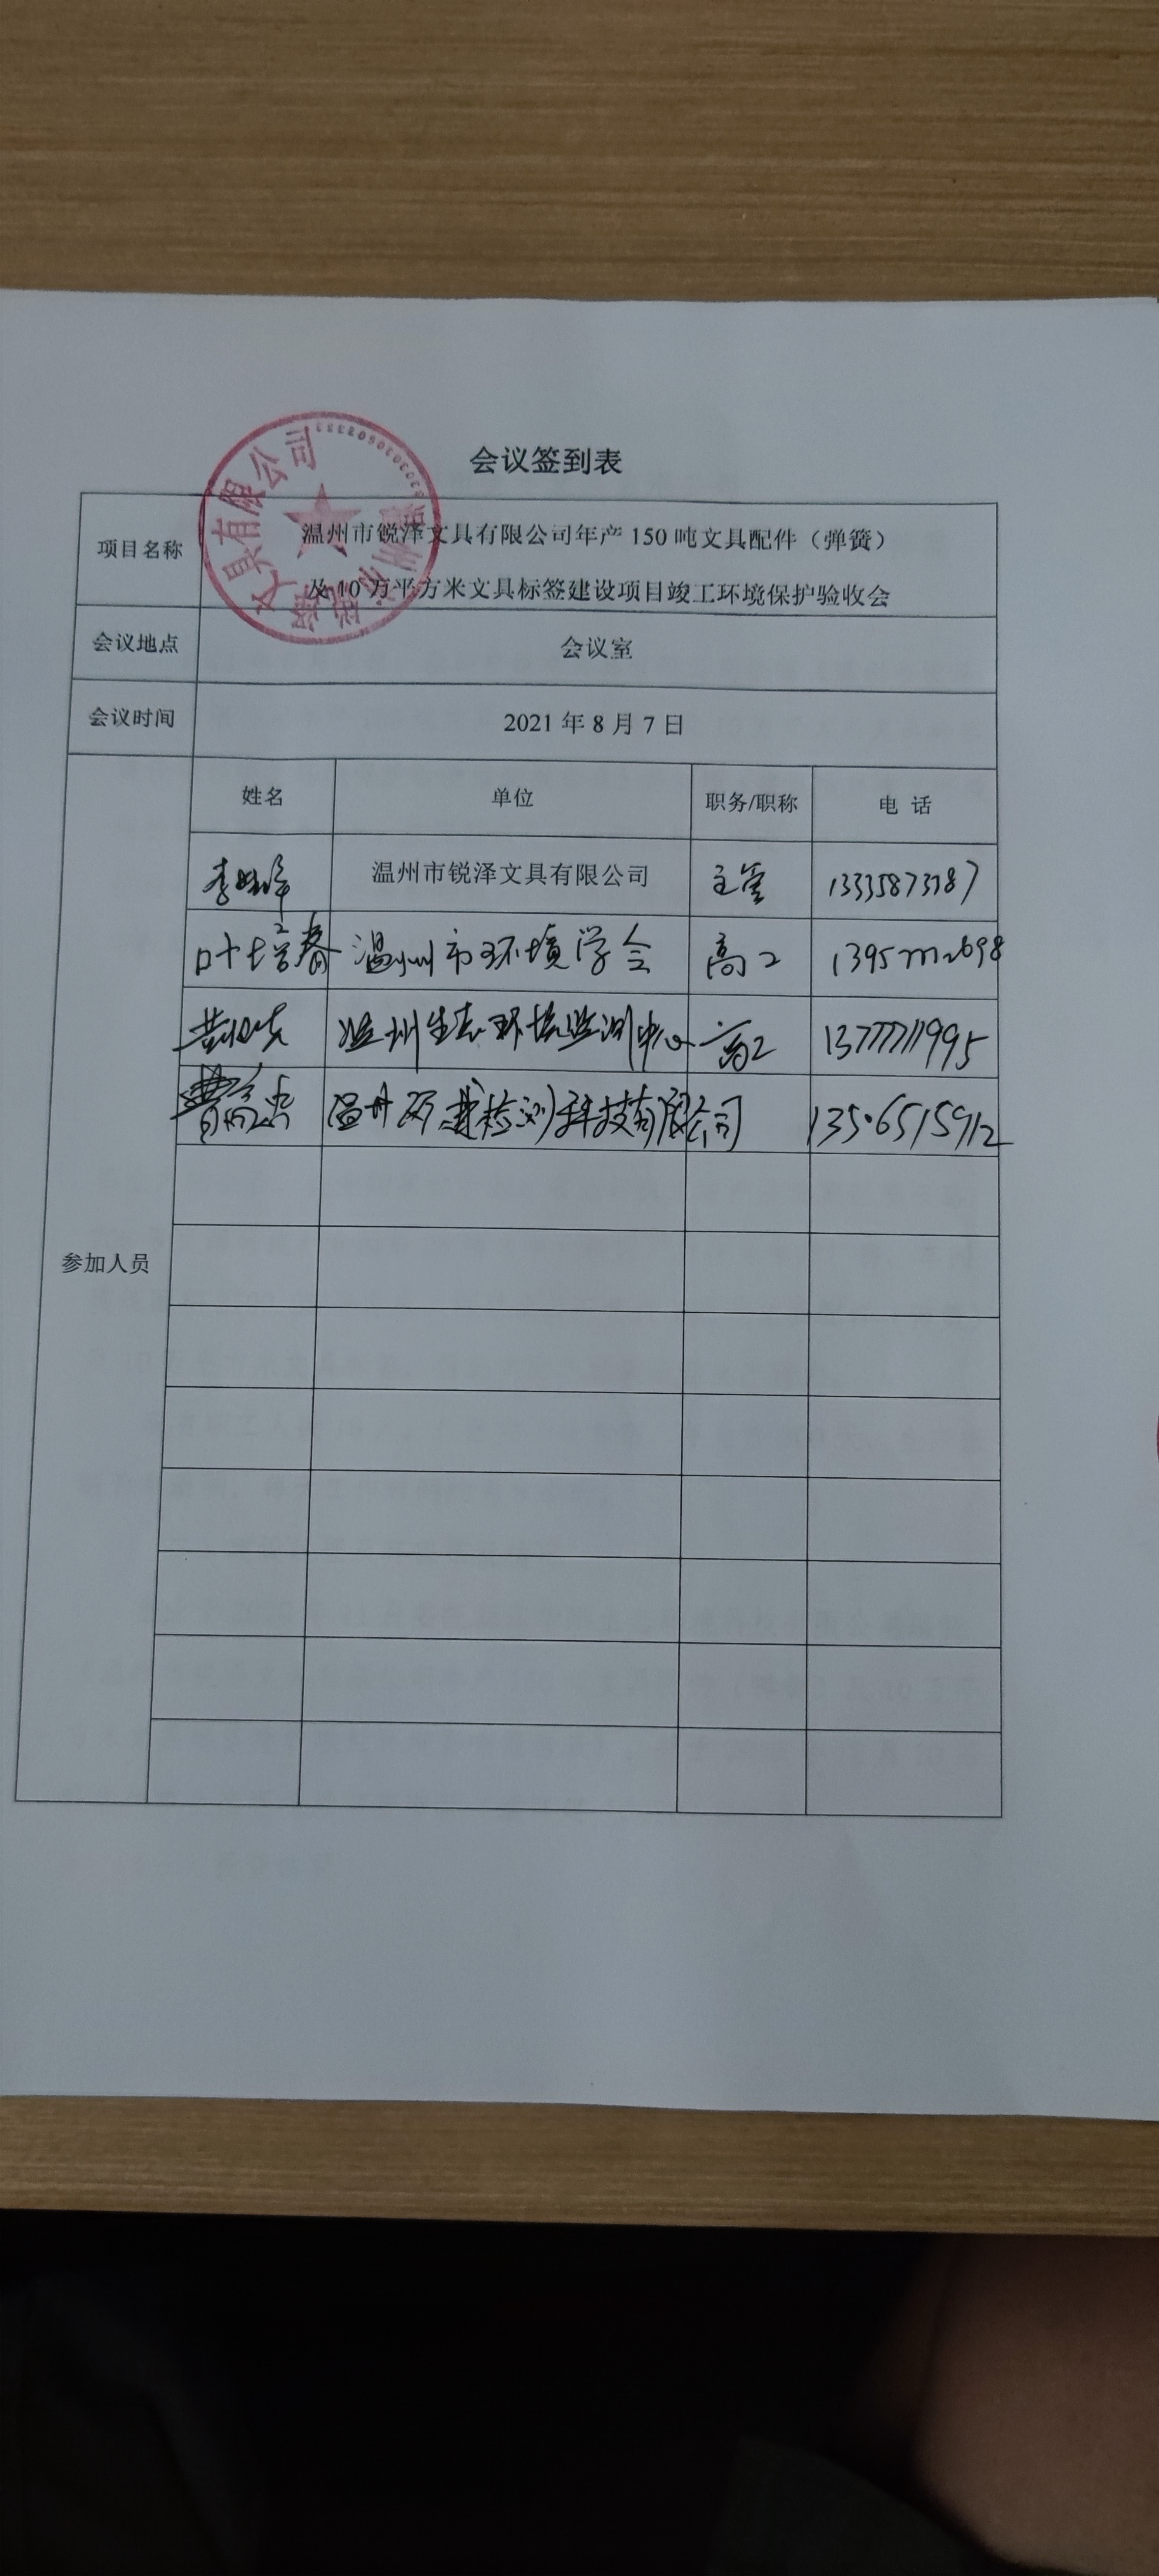 会议签到表
项目名称
温州市锐泽文具有限公司年产 150 吨文具配件（弹簧）
及 10 万平方米文具标签建设项目竣工环境保护验收会
会议地点 会议室
会议时间 2021 年 8 月 7 日
参加人员
姓名 单位 职务/职称 电 话
温州市锐泽文具有限公司 主管
叶培春 温州市环境学会 高工
温州生态环境监测中心 高工 13777711995
检测科技有限公司 13506515912